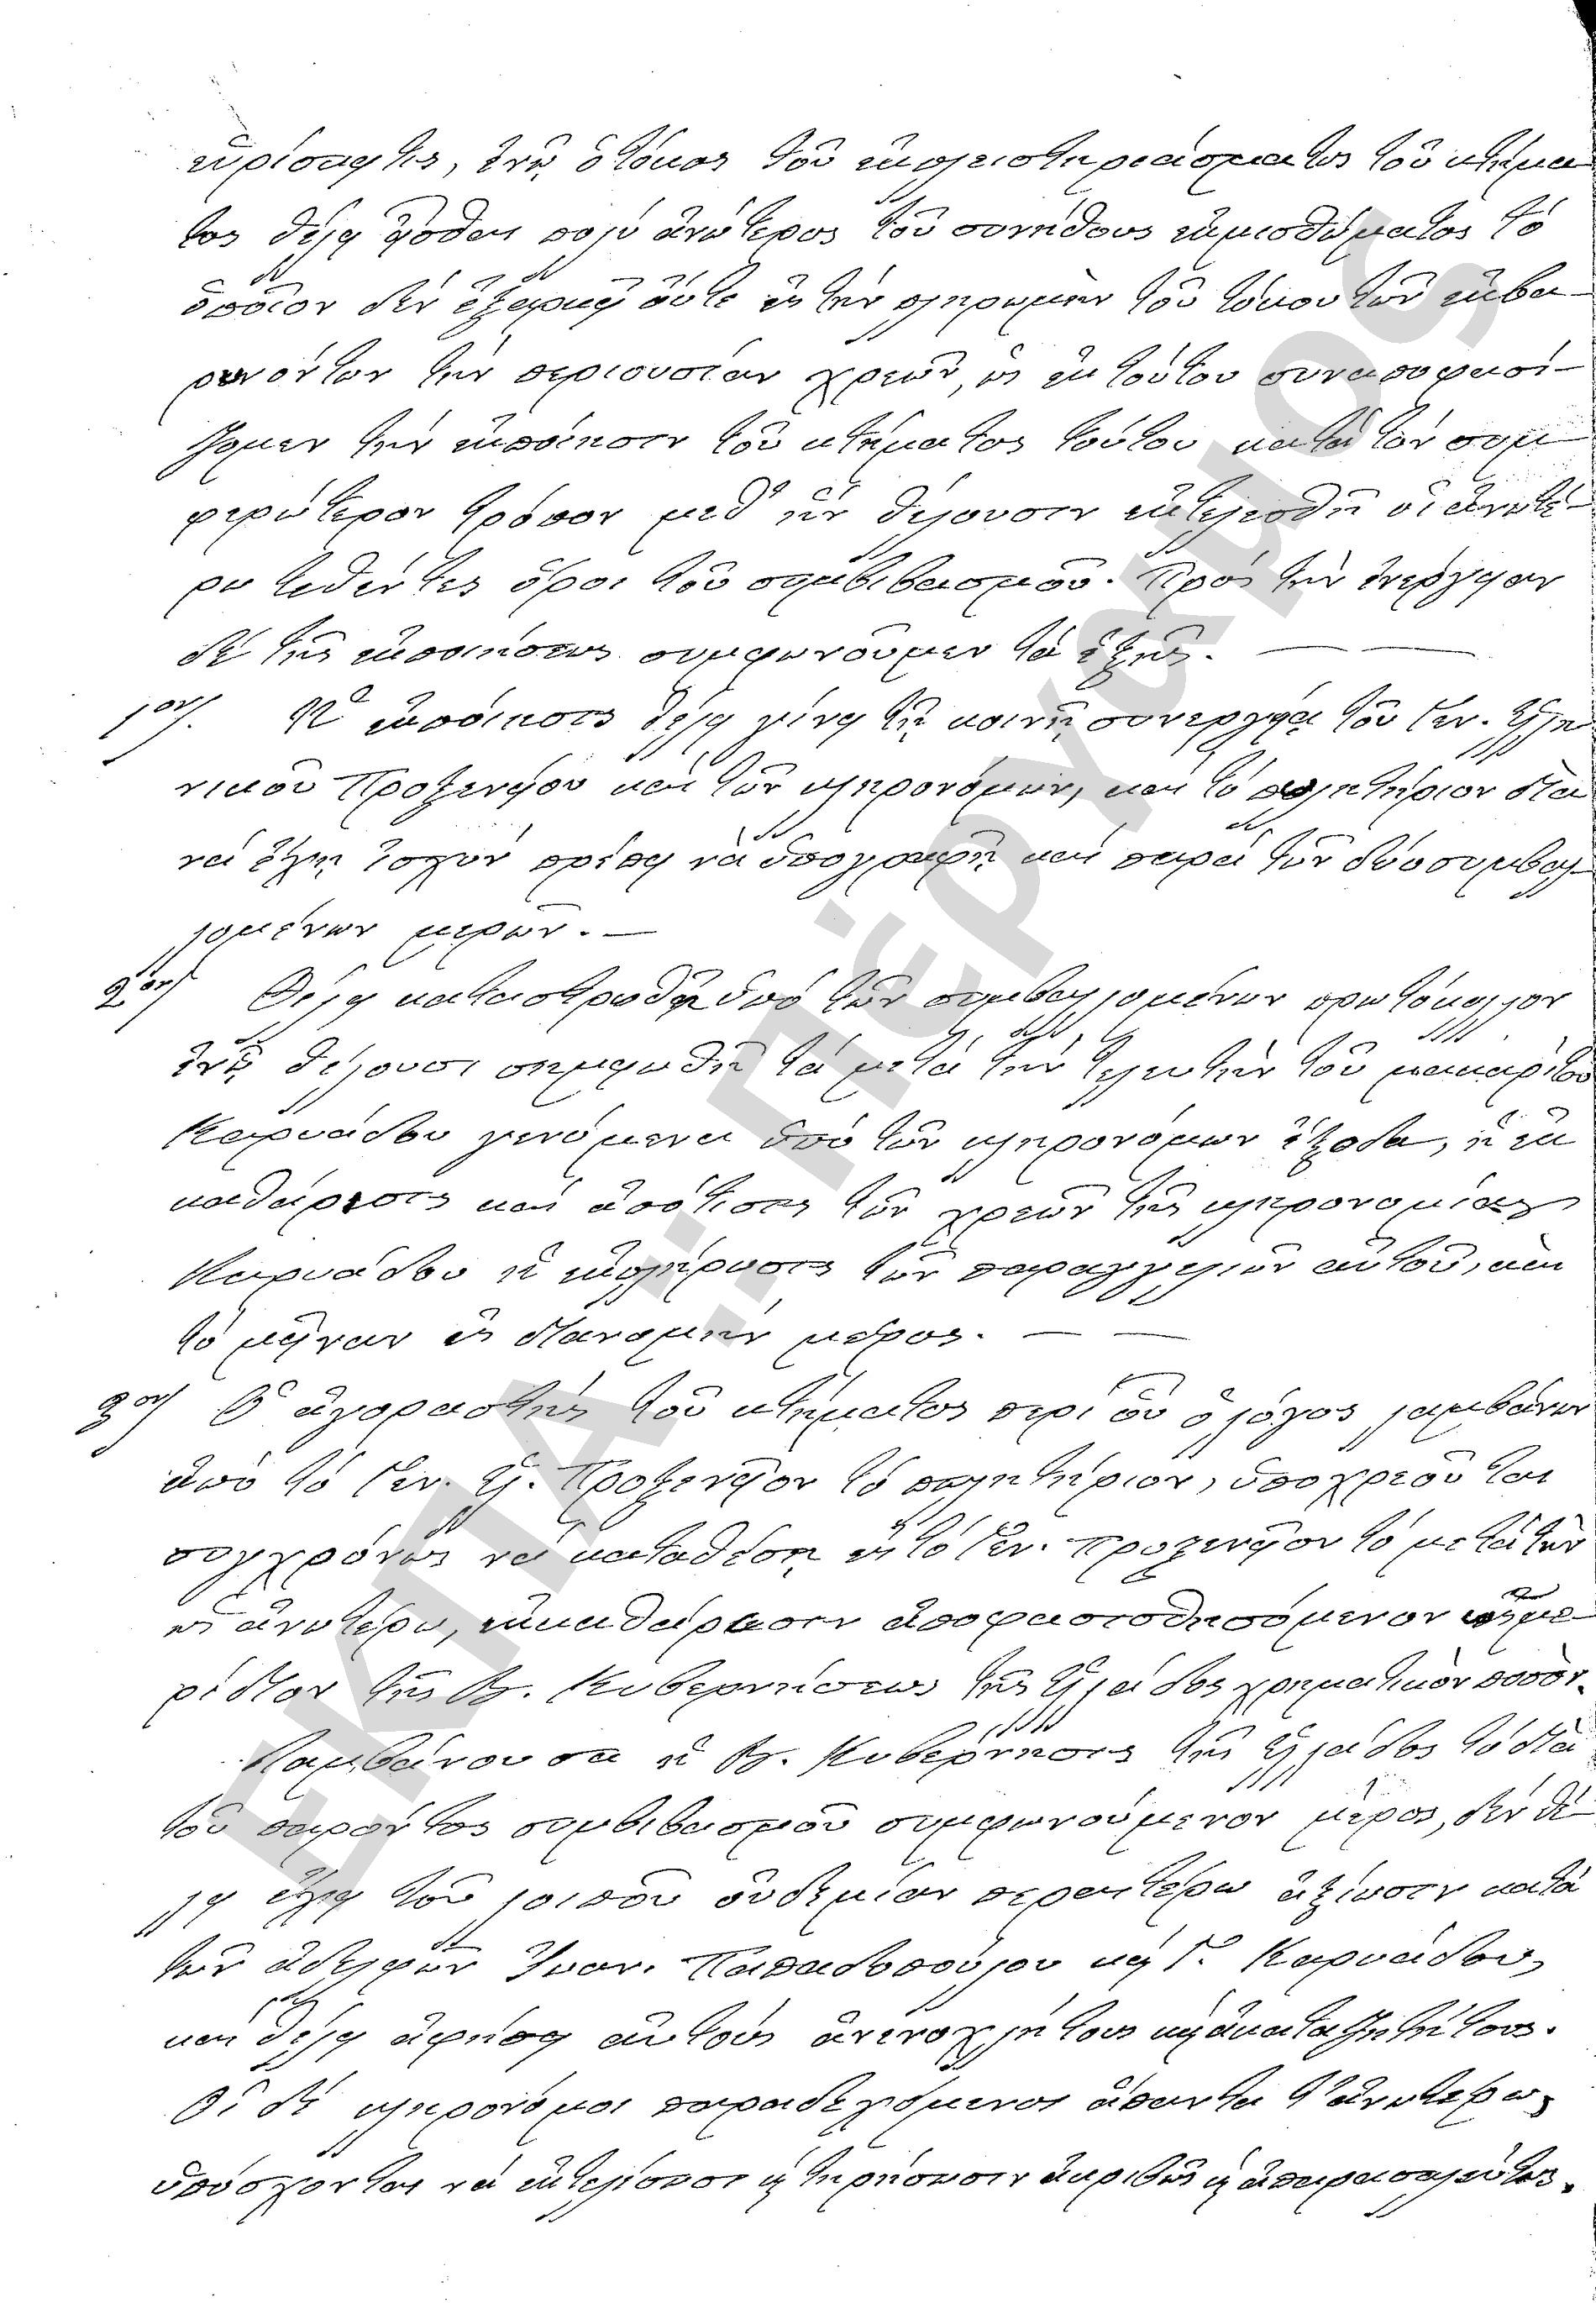 εὑρίσκηται, ἐνῷ ὁ τόκος τοῦ ἐκπλειστηριάσματος τοῦ κτήμα-
τος θέλει εἶσθαι πολύ ἀνώτερος τοῦ συνήθους ἐκμισθώματος τό
ὁποῖον δέν ἐξαρκεῖ οὔτε εἰς τήν πληρωμήν τοῦ τόκου τῶν ἐκβα-
ρυνόντων τήν περιουσίαν χρεῶν, ἐκ τούτου συναποφασί-
ζομεν τήν ἐκποίησιν τοῦ κτήματος τούτου κατά τόν συμ-
φερώτερον τρόπον μεθ' ἥν θέλουσιν ἐκτελεσθῆ οἱ ἀνωτέ-
ρω τεθέντες ὅροι τοῦ συμβιβασμοῦ. Πρός τήν ἐνέργειαν
δέ τῆς ἐκποιήσεως συμφωνοῦμεν τά ἑξῆς. — —
1ον). Ἡ ἐκποίησις θέλει γίνει τῇ κοινῇ συνεργείᾳ τοῦ Γεν. Ἑλλη-
νικοῦ Προξενείου καί τῶν κληρονόμων, καί τό πωλητήριον διά
νά ἔχῃ ἰσχύν πρέπει νά ὑπογραφῇ καί παρά τῶν δύο συμβαλ-
λομένων μερῶν. —
2ον) Θέλει καταστρωθῆ ὑπό τῶν συμβαλλομένων πρωτόκολλον
ἐνῷ θέλουσι σημειωθῆ τά μετά τήν τελευτήν τοῦ μακαρίτου
Καρυάδου γενόμενα ὑπό τῶν κληρονόμων ἔξοδα, ἡ ἐκ-
καθάρισις καί ἀπότισις τῶν χρεῶν τῆς κληρονομίας
Καρυάδου ἡ ἐκπλήρωσις τῶν παραγγελιῶν αὐτοῦ, καί
τό μεῖναν εἰς διανομήν μέρος. — —
3ον) Ὁ ἀγοραστής τοῦ κτήματος περί οὗ ὁ λόγος λαμβάνων
ἀπό τό Γεν. Ἑλ. Προξενεῖον τό πωλητήριον, ὑποχρεοῦται
συγχρόνως νά καταθέσῃ εἰς τό Γεν. Προξενεῖον τό μετά τήν
ὡς ἀνωτέρω, ἐκκαθάρισιν ἀποφασισθησόμενον ὡς με-
ρίδιον τῆς Β. Κυβερνήσεως τῆς Ἑλλάδος χρηματικόν ποσόν.
Λαμβάνουσα ἡ Β. Κυβέρνησις τῆς Ἑλλάδος τό διά
τοῦ παρόντος συμβιβασμοῦ συμφωνούμενον μέρος, δέν θέ-
λει ἔχει τοῦ λοιποῦ οὐδεμίαν περαιτέρω ἀξίωσιν κατά
τῶν ἀδελφῶν Ἰωαν. Παπαδοπούλου καί Γ. Καρυάδου,
καί θέλει ἀφήσει αὐτούς ἀνενοχλήτους καί ἀκαταζητήτους.
Οἱ δέ κληρονόμοι παραδεχόμενοι ἅπαντα τ' ἀνωτέρω,
ὑπόσχονται νά ἐκτελέσωσι καί τηρήσωσιν ἀκριβῶς καί ἀπαρασαλεύτως.
ΕΚΠΑ.: Πέργαμος